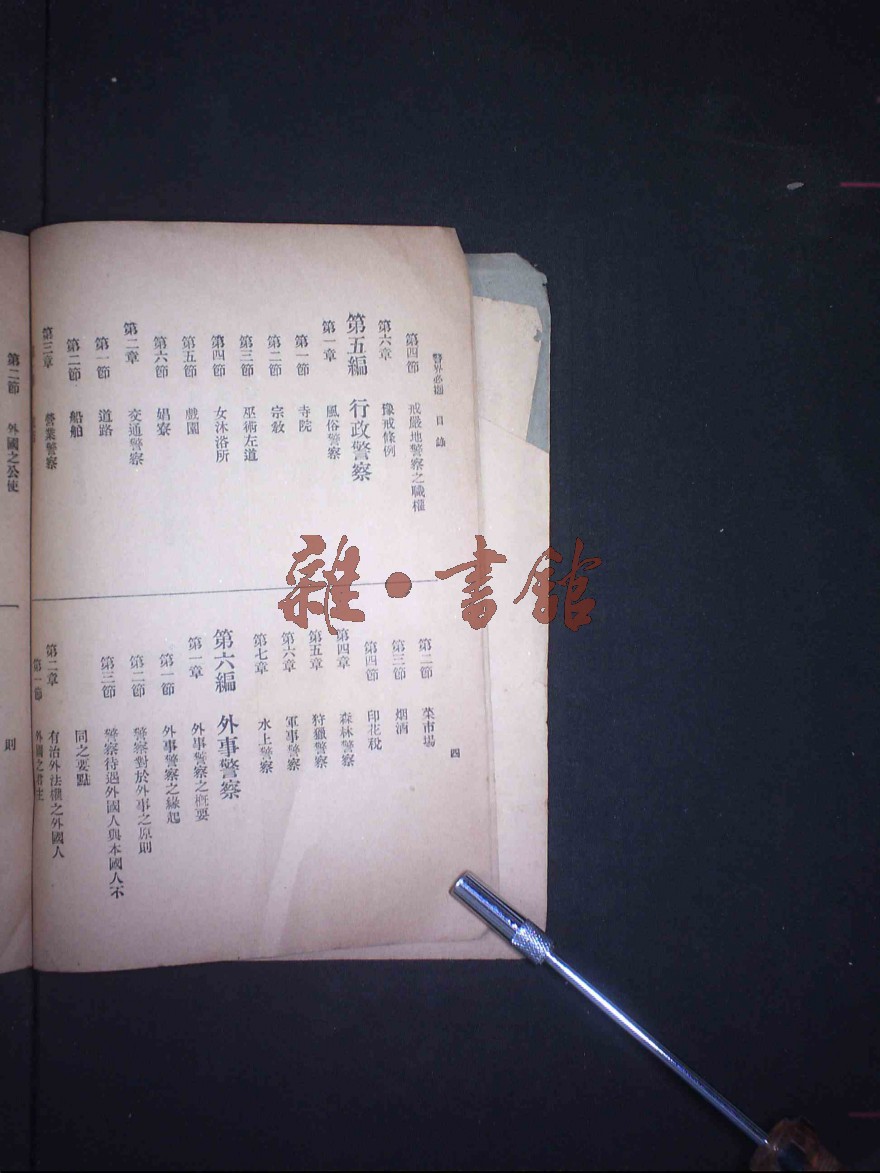 警外必攜 目錄 四
第四節 戒嚴地警察之職權
第六章 豫戒條例
第五編 行政警察
第一章 風俗警察
第一節 寺院
第二節 宗教
第三節 巫術左道
第四節 女沐浴所
第五節 戲園
第六節 娼寮
第二章 交通警察
第一節 道路
第二節 船舶
第三章 營業警察
第二節 菜市場
第三節 烟酒
第四節 印花稅
第四章 森林警察
第五章 狩獵警察
第六章 軍事警察
第七章 水上警察
第六編 外事警察
第一章 外事警察之概要
第一節 外事警察之緣起
第二節 警察對於外事之原則
第三節 警察待遇外國人與本國人不
同之要點
第二章 有治外法權之外國人
第一節 外國之君主
第二節 外國之公使
則
雜·書館